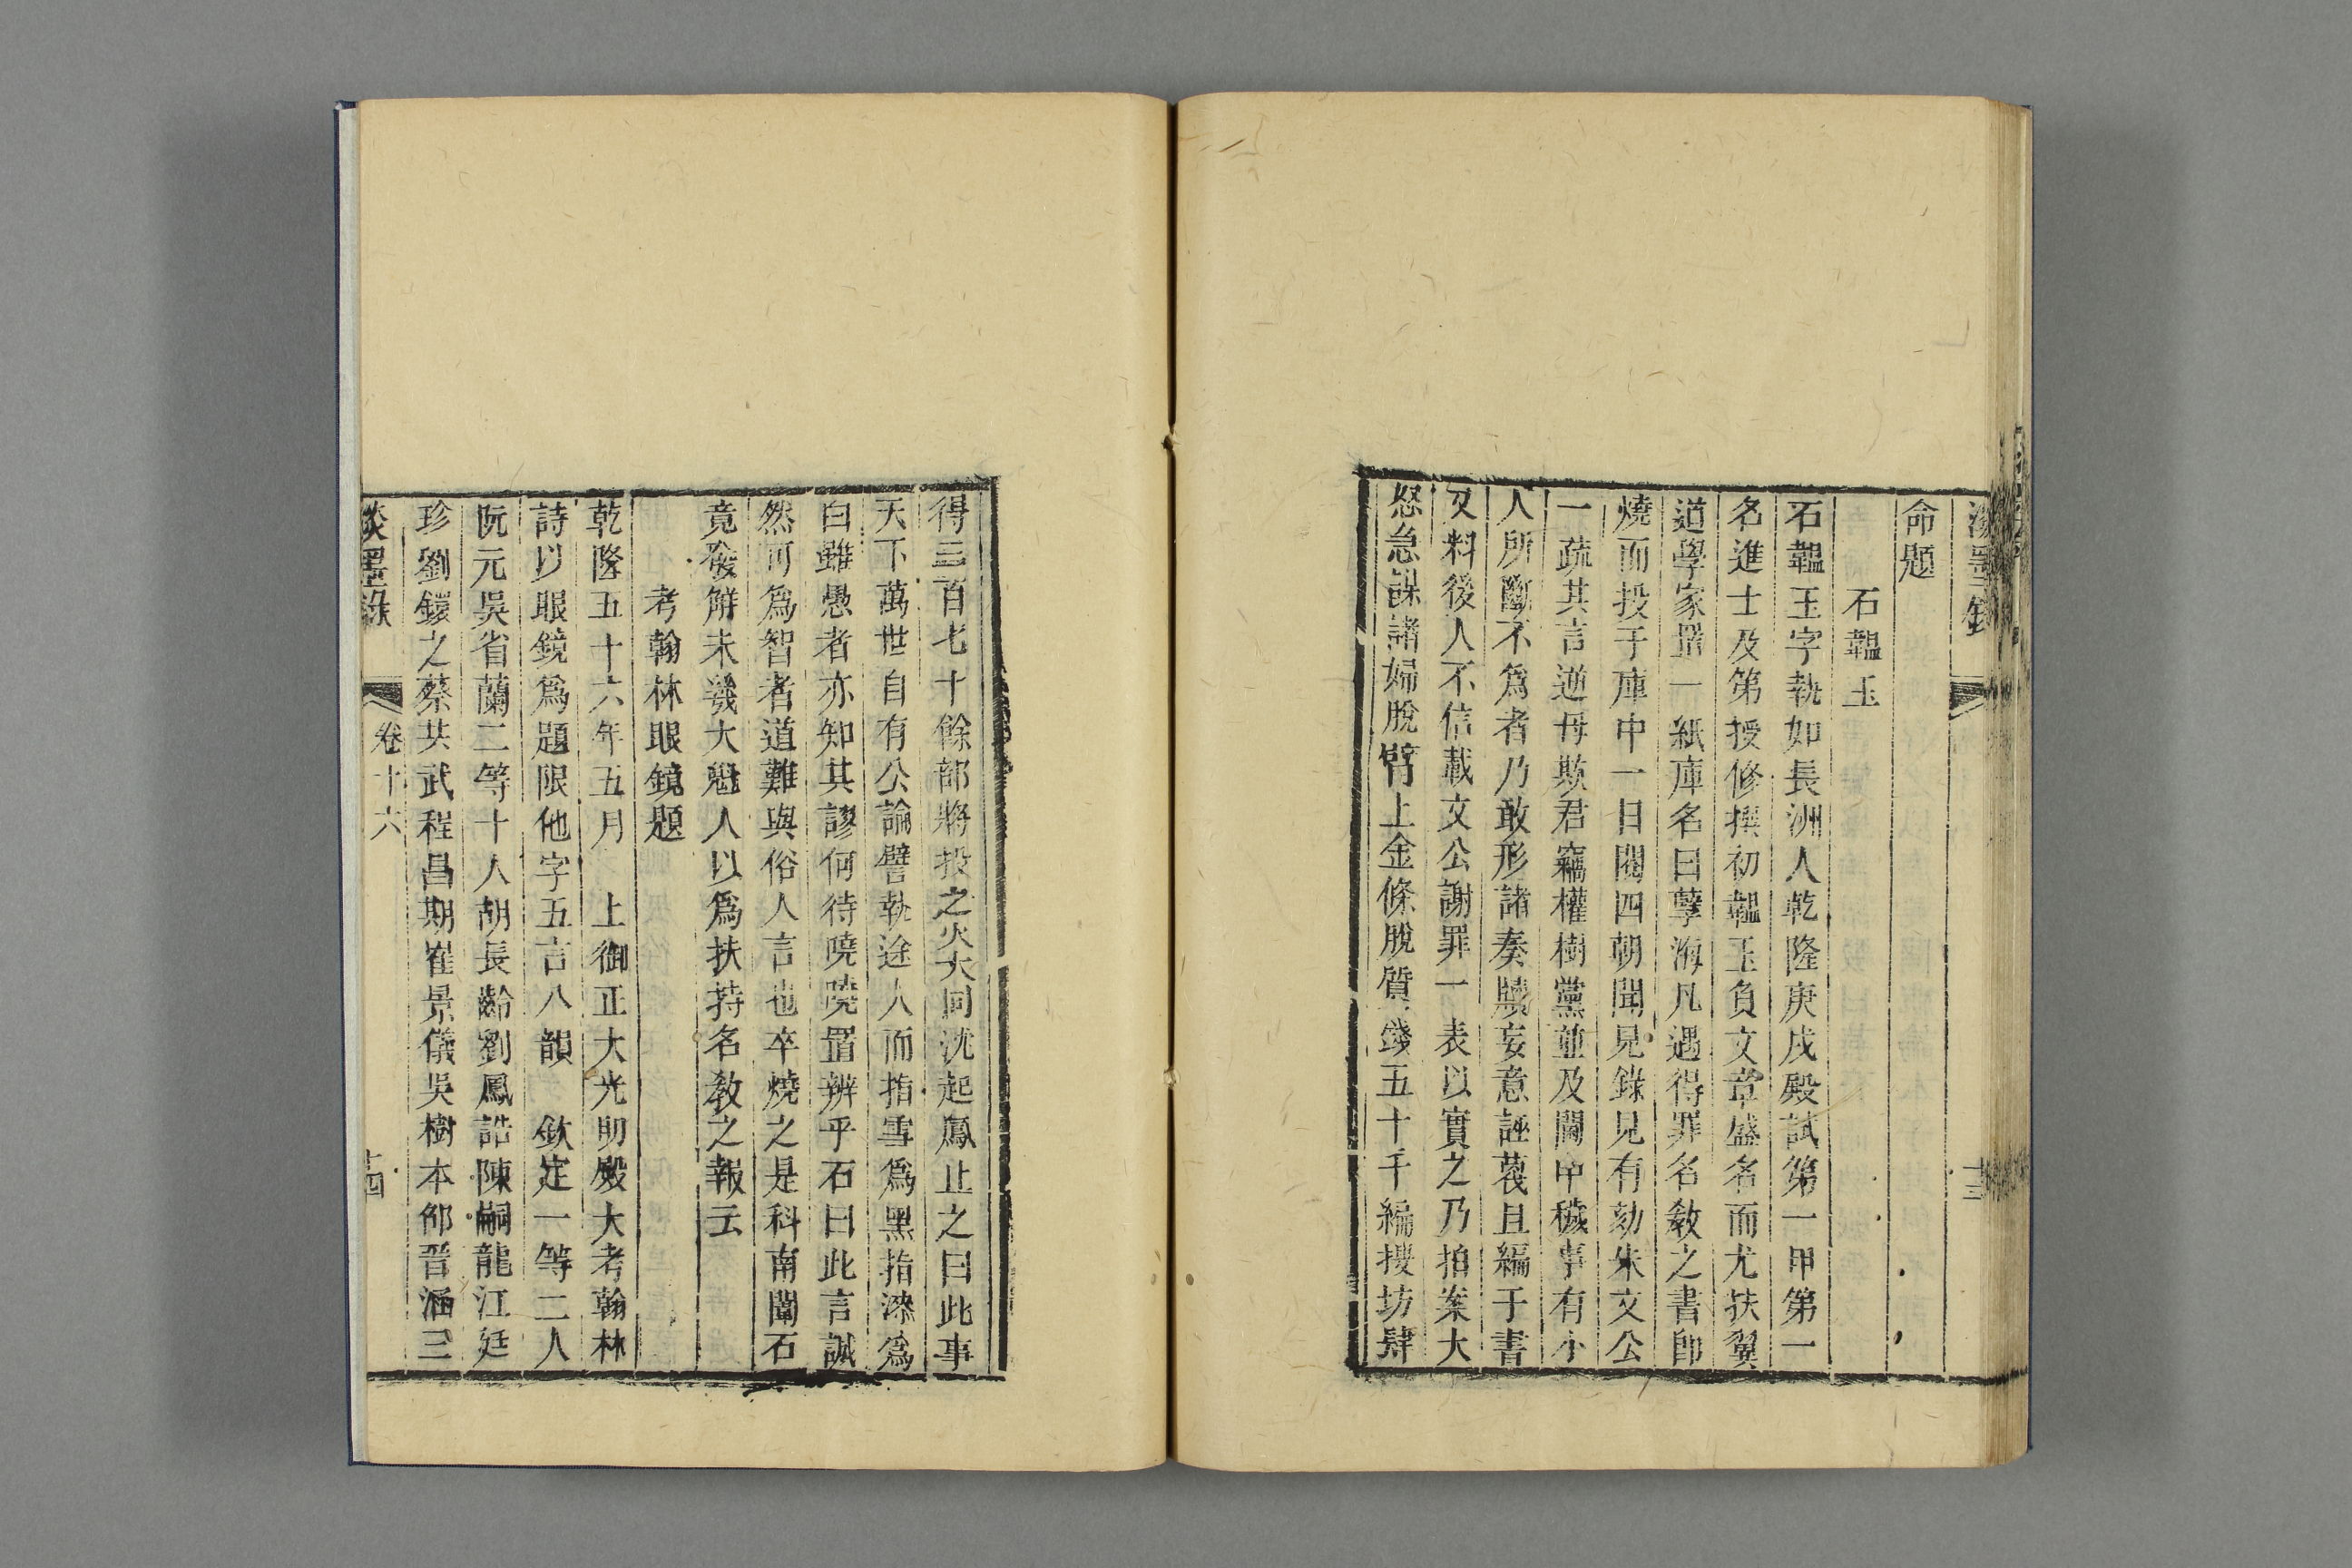 淡墨錄
十三
命題
石韞玉
石韞玉字執如長洲人乾隆庚戌殿試第一甲第一
名進士及第授修撰初韞玉負文章盛名而尤扶翼
道學家置一紙庫名曰孽海凡遇得罪名敎之書卽
燒而投于庫中一日閱四朝聞見錄見有劾朱文公
一疏其言逆母欺君竊權樹黨並及閨中穢事有小
人所斷不爲者乃敢形諸奏牘妄意誣蔑且編于書
又料後人不信載文公謝罪一表以實之乃拍案大
怒急謀諸婦脫臂上金條脫質錢五十千編搜坊肆
得三百七十餘部將投之火大同沈起鳳止之曰此事
天下萬世自有公論譬執途人而指雪爲黑指漆爲
白雖愚者亦知其謬何待曉曉置辨乎石曰此言誠
然可爲智者道難與俗人言也卒燒之是科南闈石
竟發解未幾大魁人以爲扶持名敎之報云
考翰林眼鏡題
乾隆五十六年五月 上御正大光明殿大考翰林
詩以眼鏡爲題限他字五言八韻 欽定一等二人
阮元吳省蘭二等十人胡長齡劉鳳誥陳嗣龍江廷
珍劉鐶之蔡共武程昌期崔景儀吳樹本邵晉涵三
淡墨錄 卷十六 十四